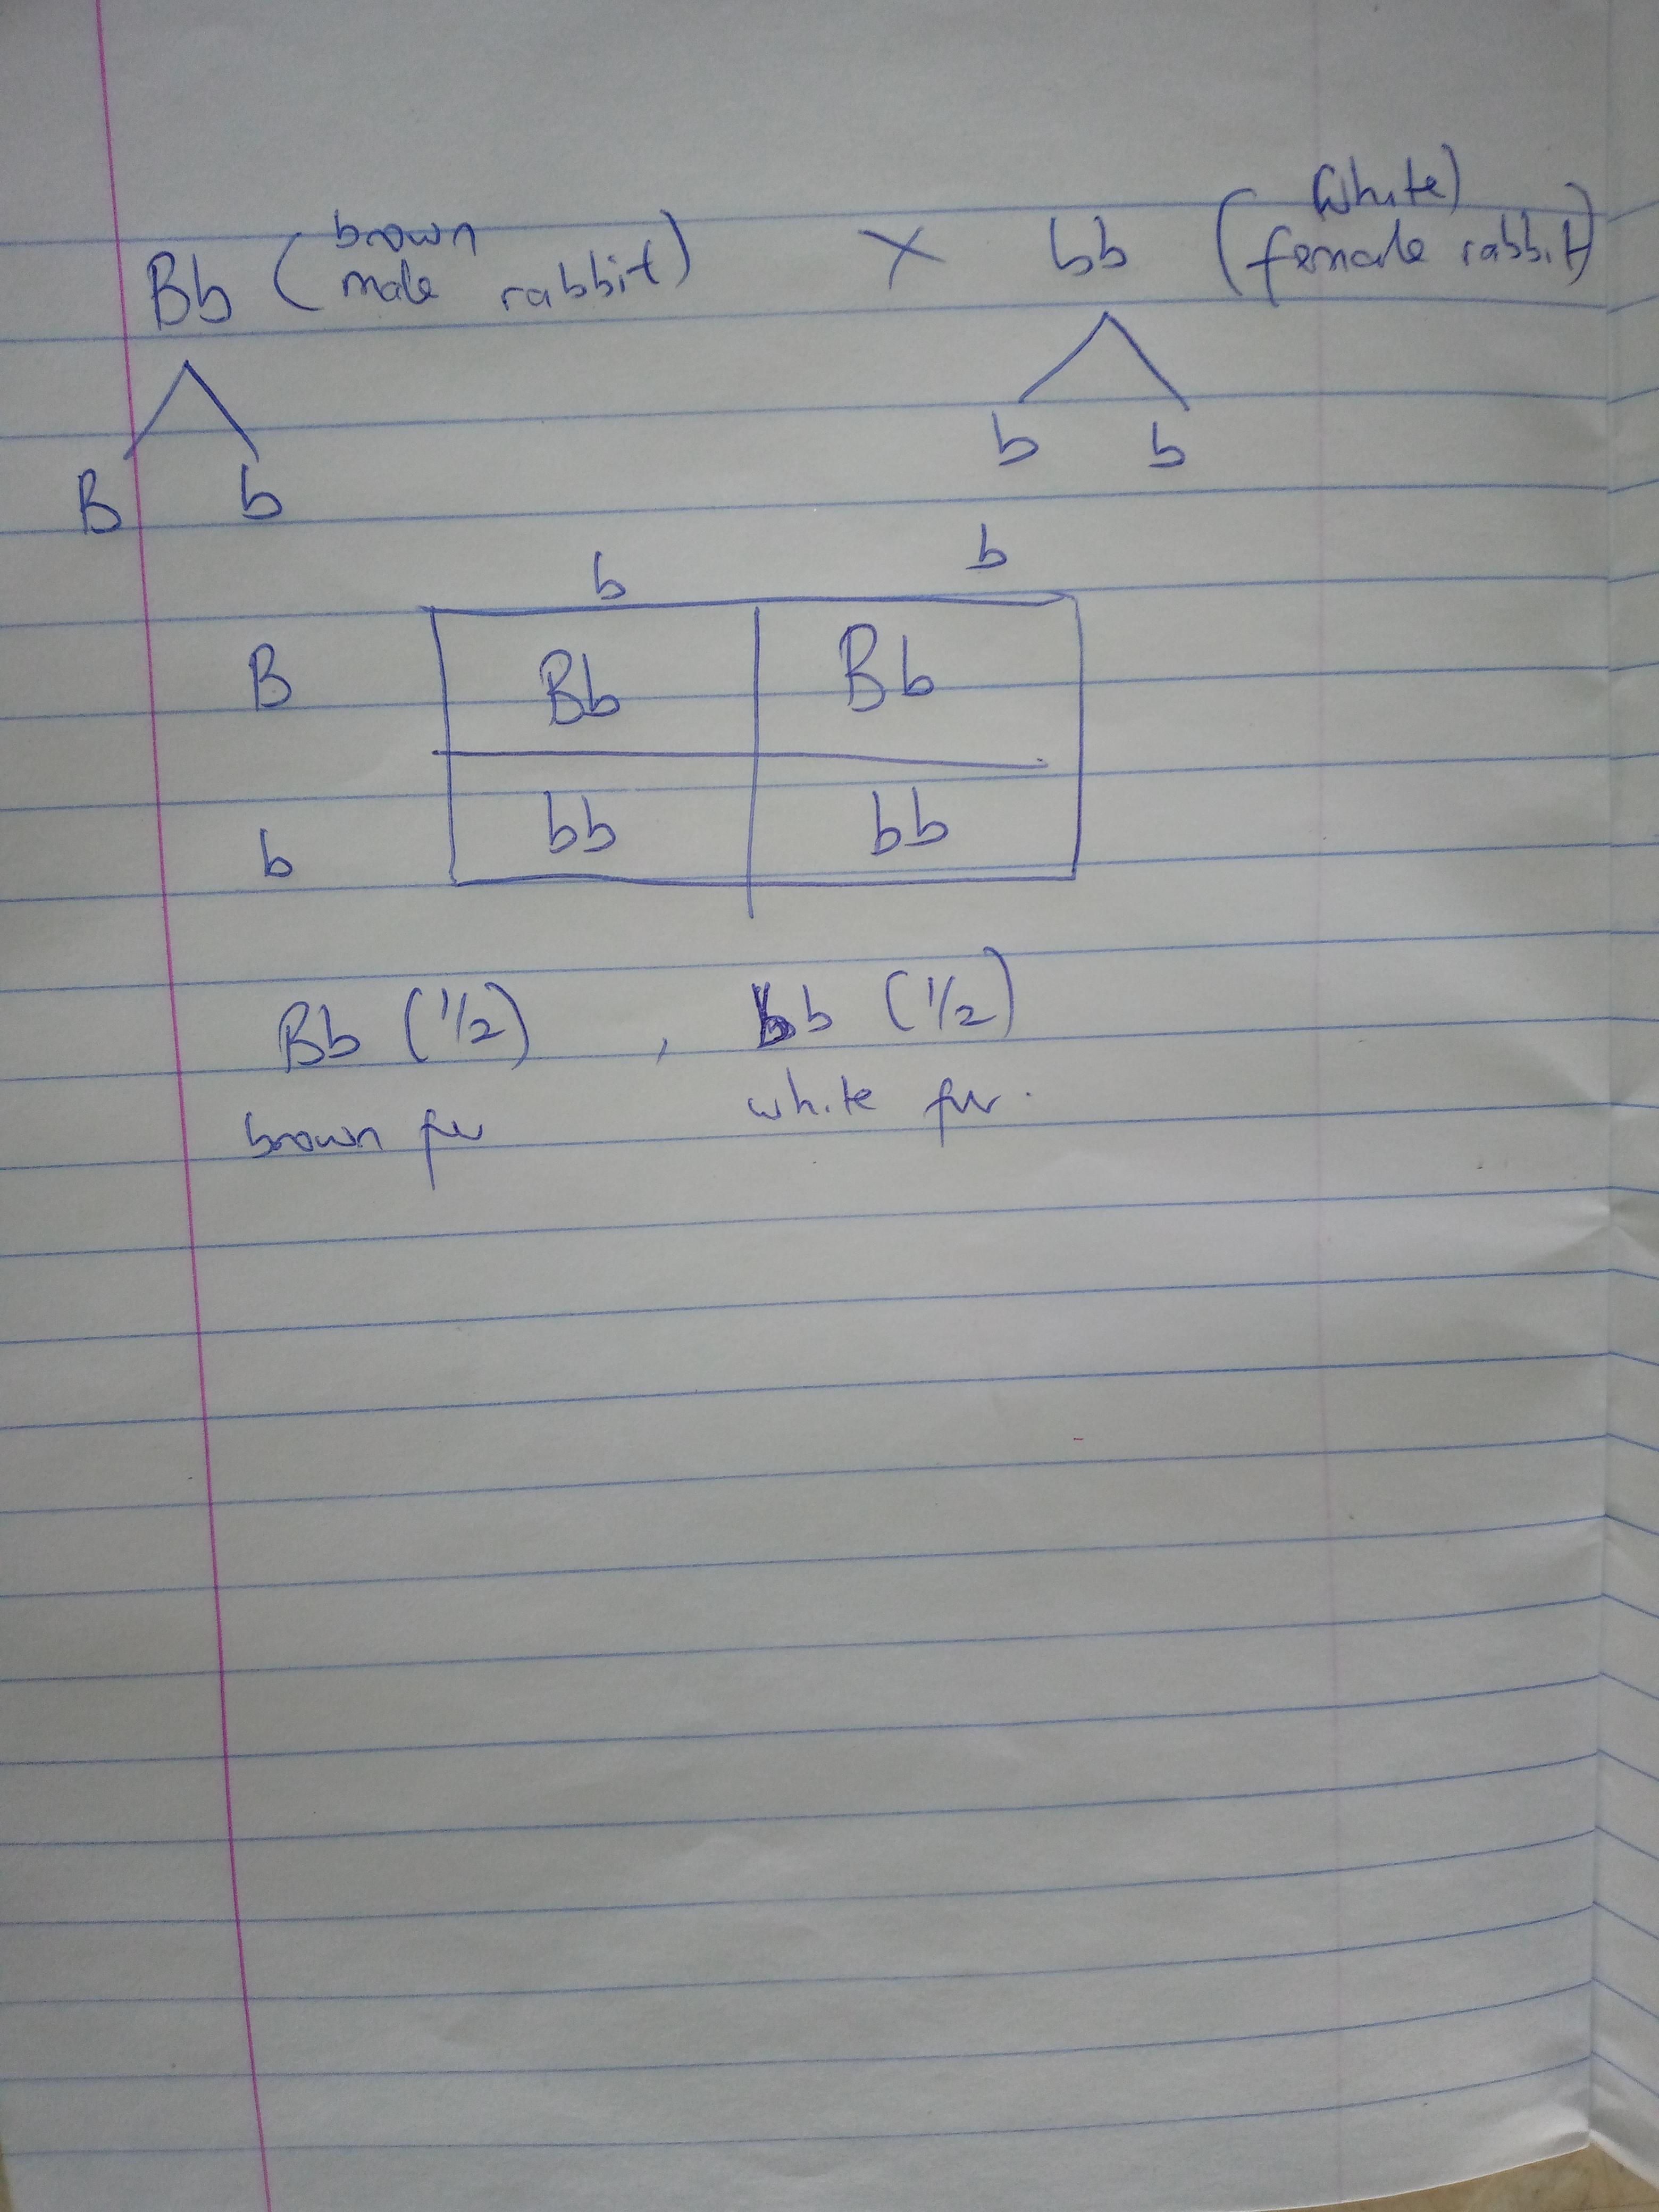 Bb (brown male rabbit) X bb (white) female rabbit)
B b b b
b b
B Bb Bb
b bb bb
Bb (1/2) , bb (1/2)
brown fur white fur.